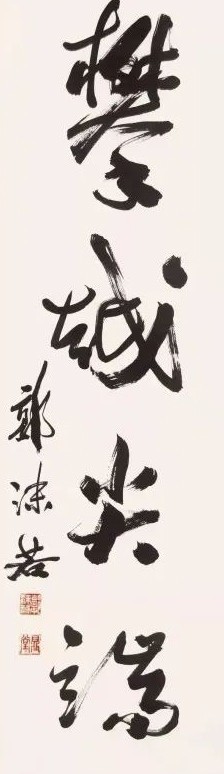 攀越尖端
郭沫若